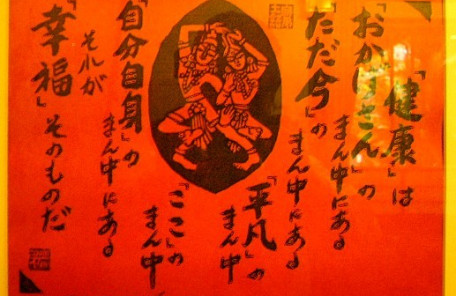 「健康」は
「おかげさん」の
まん中にある
「ただ今」の
まん中にある
「平凡」の
まん中
「ここ」の
まん中
「自分自身」の
まん中にある
それが
「幸福」そのものだ